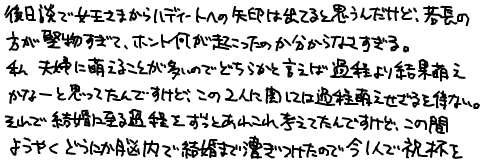 後日談で女王さまからハディートへの矢印は出てると思うんだけど、若長の
方が堅物すぎて、ホント何が起こったのか分からなさすぎる。
私 夫婦に萌えることが多いのでどちらかと言えば過程より結果萌え
かなーと思ってたんですけど、この2人に関しては過程萌えせざるを得ない。
それで結婚に至る過程をずっとあれこれ考えてたんですけど、この間
ようやくどうにか脳内で結婚まで漕ぎつけたので今1人で祝杯を